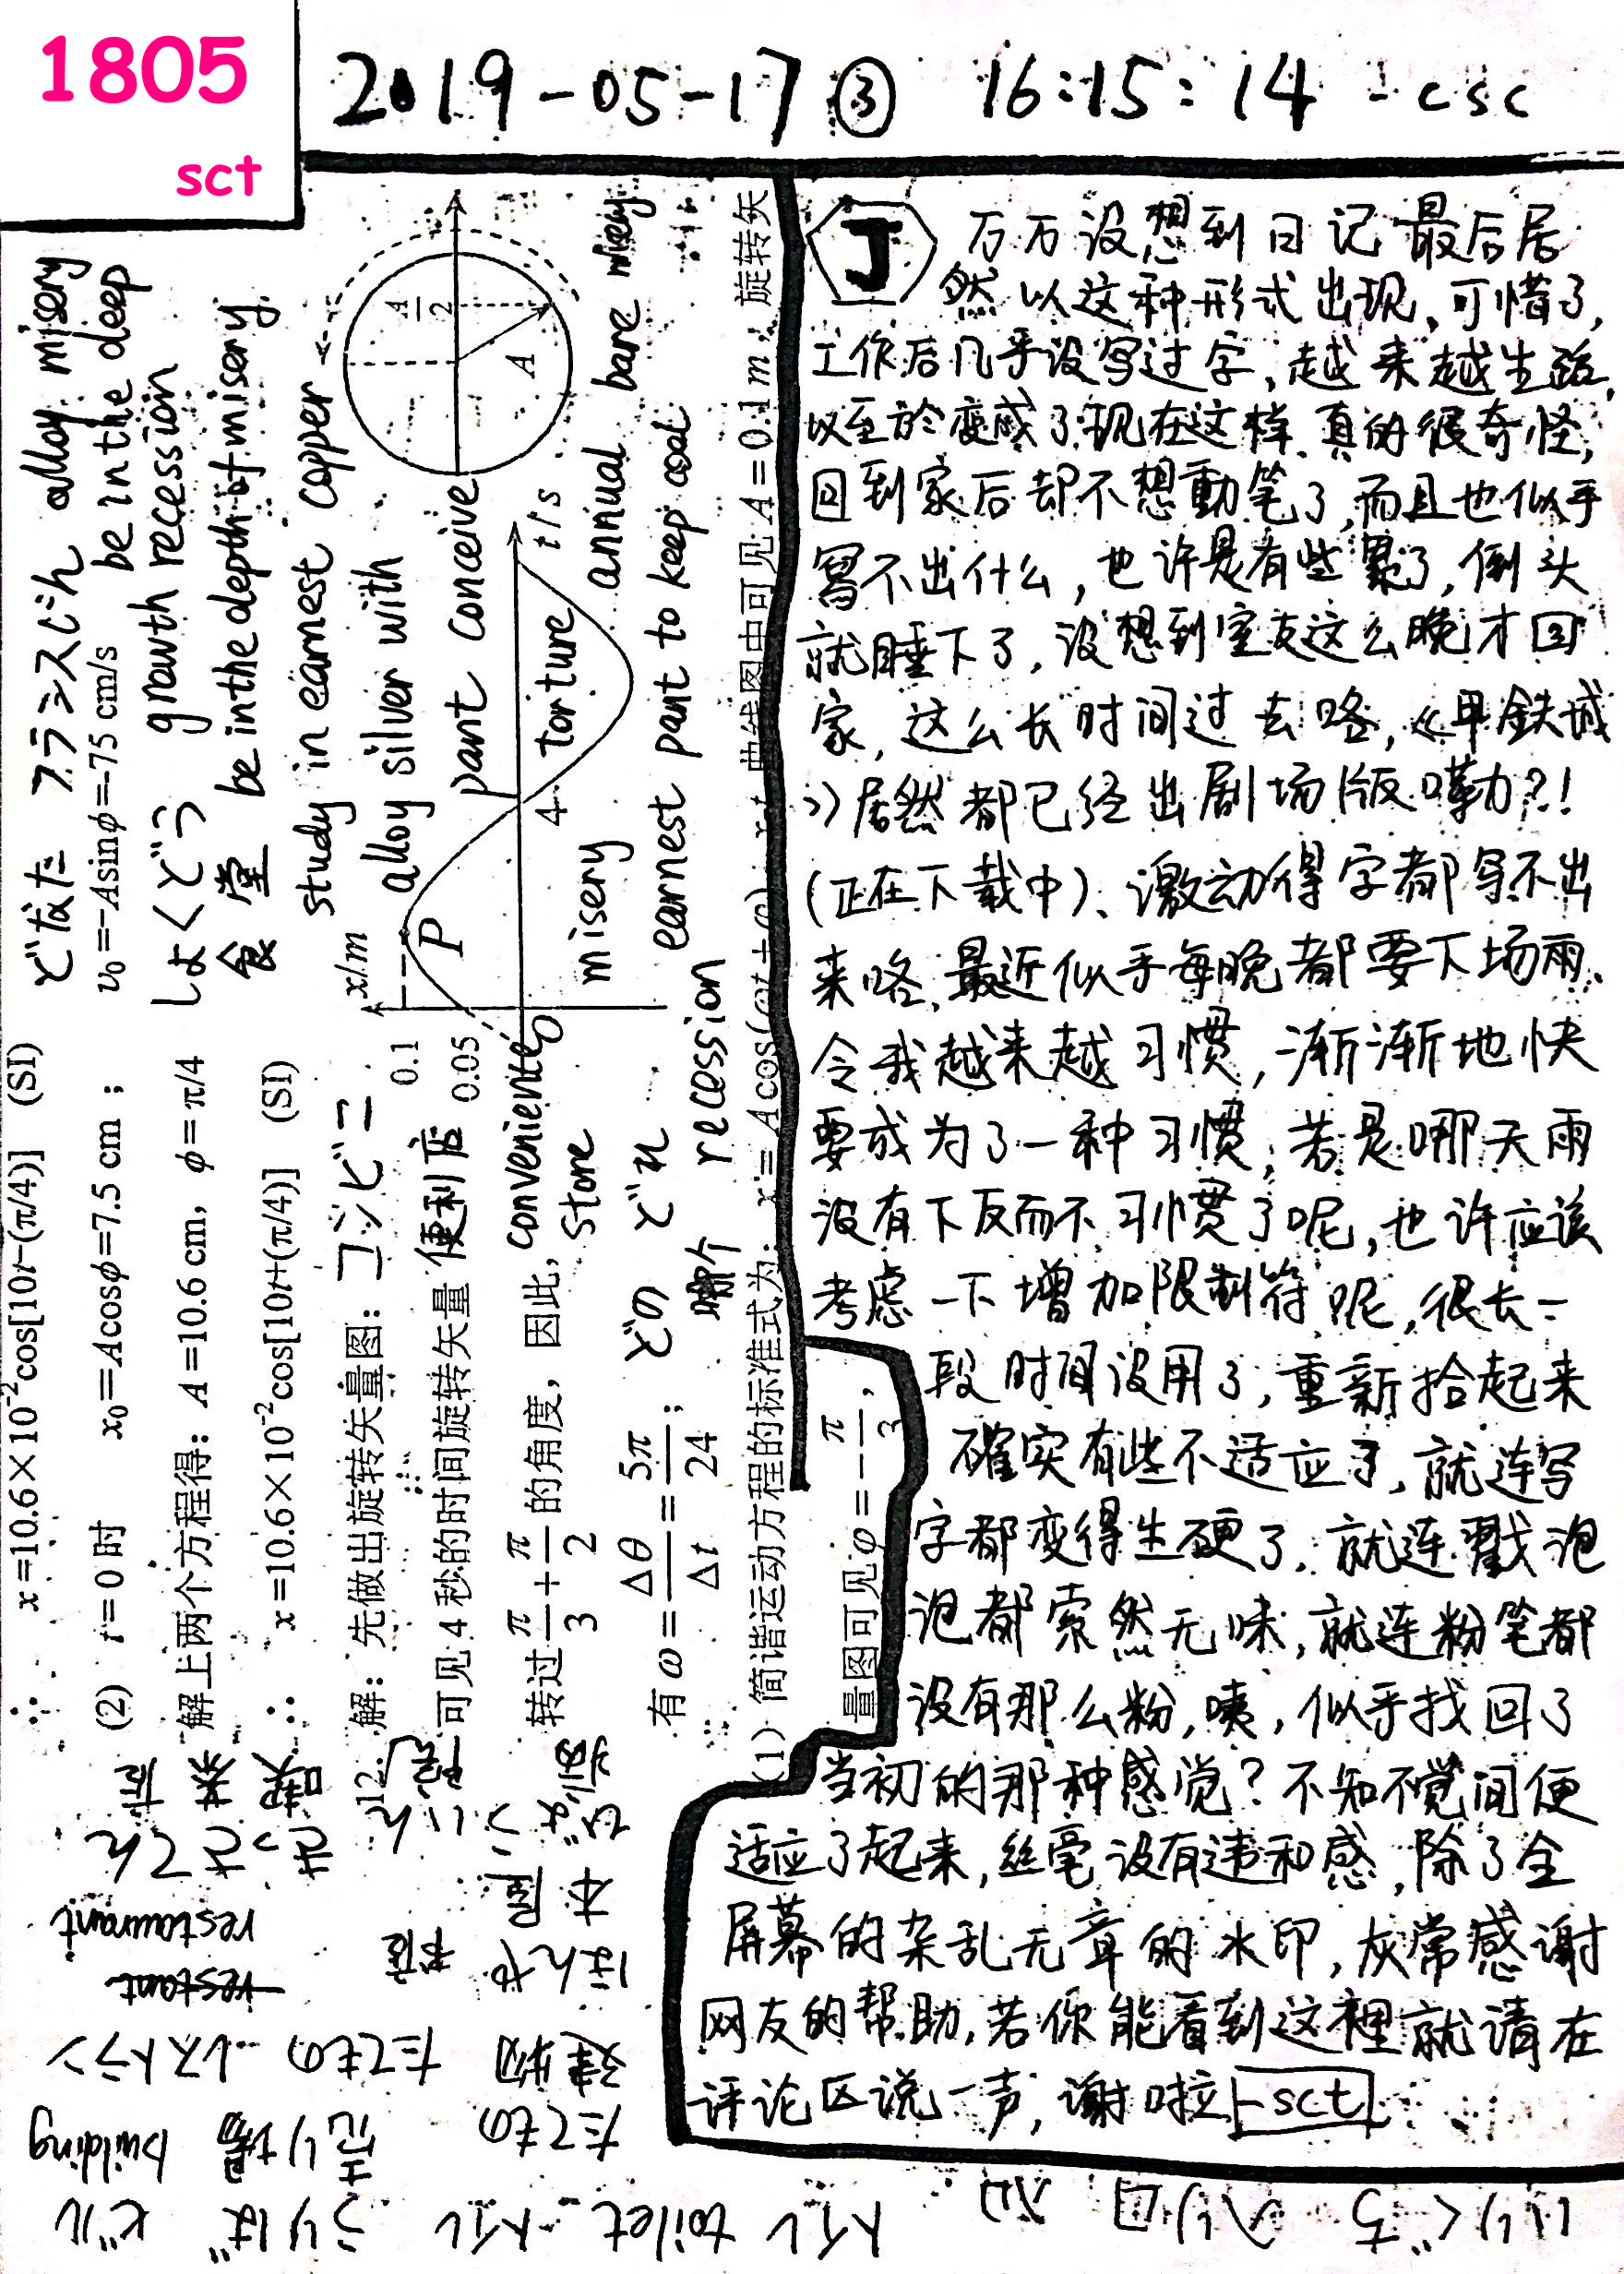 1805
sct
2019-05-17 ③ 16:15:14 -csc
J
万万没想到日记最后居
然以这种形式出现、可惜了,
工作后几乎没写过字,越来越生疏,
以至於变成了现在这样、真的很奇怪,
回到家后却不想動笔了,而且也似乎
寫不出什么,也许是有些累了,倒头
就睡下了,没想到室友这么晚才回
家,这么长时间过去咯,《甲鉄城
》居然都已经出剧场版嘞?!
(正在下载中)、激动得字都写不出
来咯、最近似乎每晚都要下场雨、
令我越来越习惯,渐渐地快
要成为了一种习惯,若是哪天雨
没有下反而不习惯了呢,也许应该
考虑一下增加限制符呢,很长一
段时间没用了,重新拾起来
確实有些不适应了,就连写
字都变得生硬了,就连戳泡
泡都索然无味,就连粉笔都
没有那么粉,咦,似乎找回了
当初的那种感觉?不知不觉间便
适应了起来,丝毫没有违和感,除了全
屏幕的杂乱无章的水印,灰常感谢
网友的帮助,若你能看到这裡就请在
评论区说一声,谢啦 -sct
x=10.6×10⁻²cos[10t-(π/4)] (SI)
(2) t=0时 x₀=Acosφ=7.5 cm ; v₀=-Asinφ=-75 cm/s
解上两个方程得: A=10.6 cm, φ=π/4
∴ x=10.6×10⁻²cos[10t+(π/4)] (SI)
12. 解: 先做出旋转矢量图:
可见 4 秒的时间旋转矢量
转过 π/3 + π/2 的角度, 因此,
有 ω = Δθ/Δt = 5π/24 ;
(1) 简谐运动方程的标准式为: x = Acos(ωt+φ)
曲线图中可见 A=0.1 m, 旋转矢
量图可见 φ=-π/3,
x/m
0.1
0.05
0
P
4
t/s
A/2
A
どなた フランスじん alloy misery
be in the deep
しょくどう growth recession
食堂 be in the depth of misery
study in earnest copper
alloy silver with
pant conceive
コンビニ
便利店
convenience
store
torture annual bare misery
misery
earnest pant to keep cool
どの どれ
哪个 recession
restaurant
restant
レストラン
たてもの
建物
たてもの
building
ビル
うりば
売り場
トイレ toilet トイレ
入り口
いりぐち